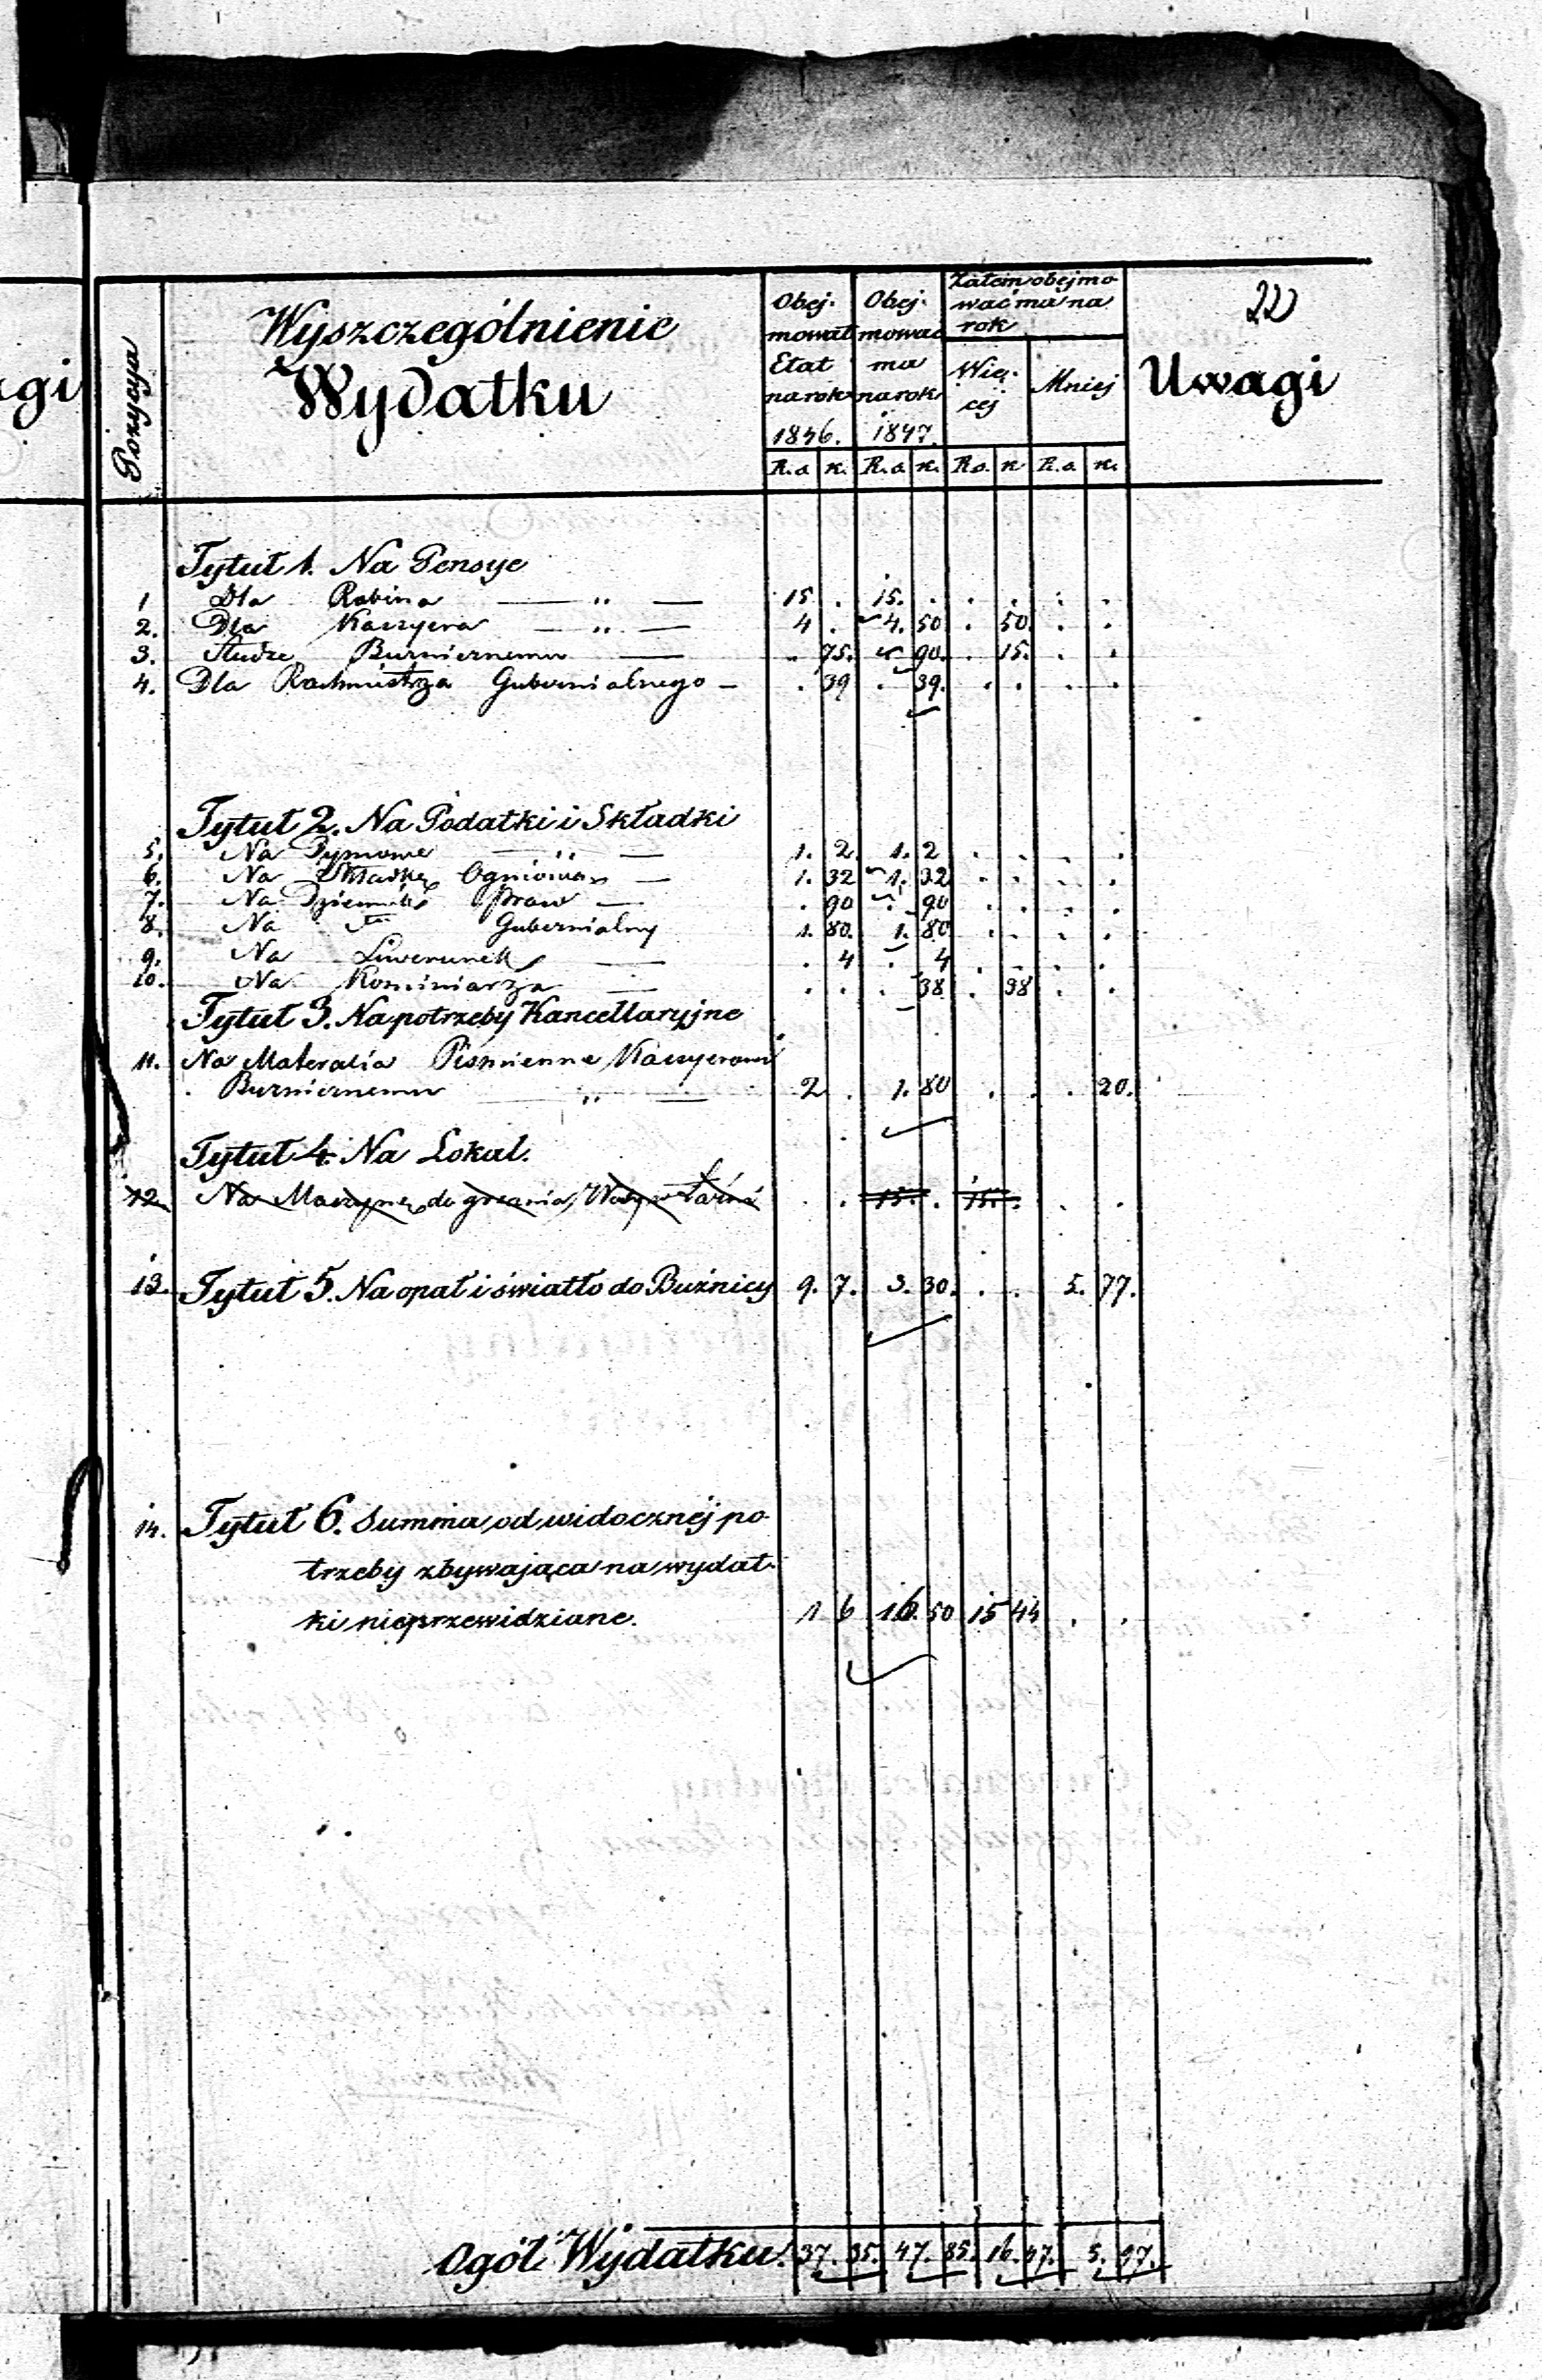 22
gi
Pozycya
Wyszczególnienie
Wydatku
Obej-
mował
Etat
na rok
1846.
Obej-
mować
ma
na rok
1847.
Zatem obejmo
wać ma na
rok
Wię-
cej
Mniej
Uwagi
R.a k. R.a k. R.a k R.a k.
Tytuł 1. Na Pensye
1 Dla Rabina — „ — 15 . 15. . . . . .
2. Dla Kassyera — „ — 4 . 4. 50 . 50 . .
3. Słudze Bużniernemu — . 75. 90. . 15. . .
4. Dla Rachmistrza Gubernialnego — . 39 . 39. . . . .
Tytuł 2. Na Podatki i Składki
5. Na Dymowe — „ — 1. 2 1. 2 . . . .
6. Na Składkę Ogniową — 1. 32 1. 32 . . . .
7. Na Dziennik Praw — . 90 . 90 . . . .
8. Na Gubernialny 1. 80. 1. 80 . . . .
9. Na Liwerunek — . 4 . 4 . . . .
10. Na Kominiarza — . . . 38 . 38 . .
Tytuł 3. Na potrzeby Kancellaryjne
11. Na Materalia Piśmienne Kassyerowi
Bużniernemu „ — 2 . 1. 80 . . . 20.
Tytuł 4. Na Lokal.
12. Na Maszynę do grzania Wody w Łaźni . . 15. . 15. . . .
13. Tytuł 5. Na opał i światło do Bużnicy 9. 7. 3. 30. . . 5. 77.
14. Tytuł 6. Summa od widocznéj po
trzeby zbywająca na wydat-
ki nieprzewidziane. 1 6 16. 50 15 44 . .
Ogół Wydatku. 37. 35. 47. 85. 16. 47. 5. 97.